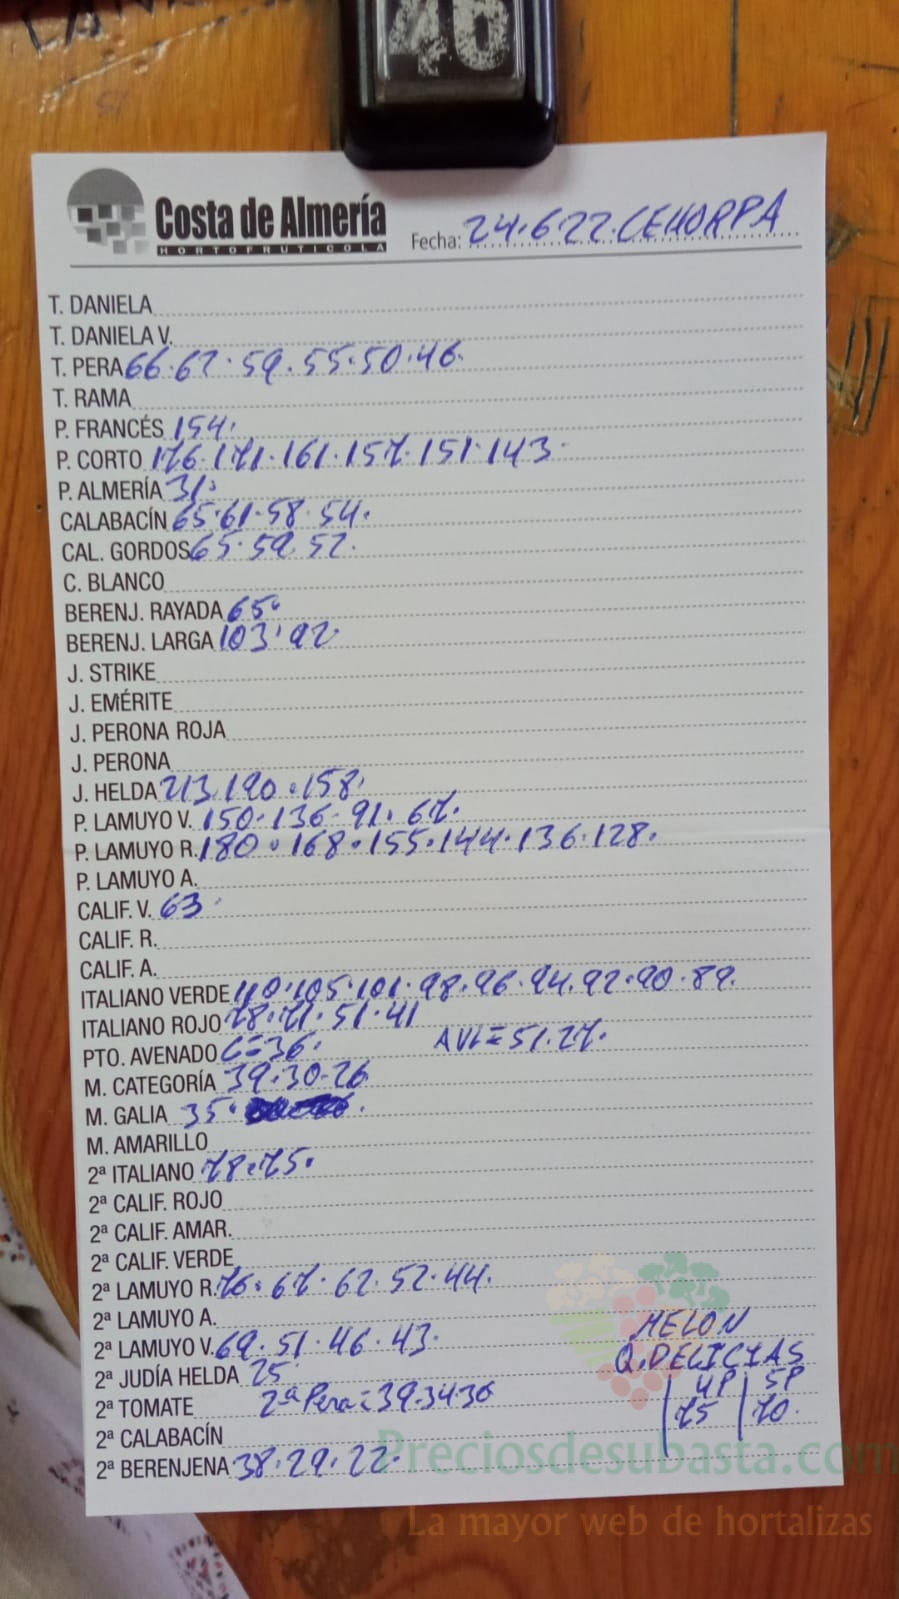 46
Costa de Almería
HORTOFRUTICOLA
Fecha: 24.6.22.CEHORPA
T. DANIELA
T. DANIELA V.
T. PERA 66.62.59.55.50.46.
T. RAMA
P. FRANCÉS 154.
P. CORTO 176.171.161.157.151.143.
P. ALMERÍA 31.
CALABACÍN 65.61.58.54.
CAL. GORDOS 65.59.52.
C. BLANCO
BERENJ. RAYADA 65.
BERENJ. LARGA 103.92.
J. STRIKE
J. EMÉRITE
J. PERONA ROJA
J. PERONA
J. HELDA 213.190.158.
P. LAMUYO V. 150.136.91.67.
P. LAMUYO R. 180.168.155.144.136.128.
P. LAMUYO A.
CALIF. V. 63.
CALIF. R.
CALIF. A.
ITALIANO VERDE 110.105.101.98.96.94.92.90.89.
ITALIANO ROJO 78.71.51.41
PTO. AVENADO C=36. AVL=51.27.
M. CATEGORÍA 39.30-26
M. GALIA 35.
M. AMARILLO
2ª ITALIANO 78.75.
2ª CALIF. ROJO
2ª CALIF. AMAR.
2ª CALIF. VERDE
2ª LAMUYO R. 76.67.62.52.44.
2ª LAMUYO A.
2ª LAMUYO V. 69.51.46.43.
2ª JUDÍA HELDA 25
2ª TOMATE 2ª Pera=39.34.30
2ª CALABACÍN
2ª BERENJENA 38.29.22.
MELON
Q.DELICIAS
4P 5P
75 70.
Preciosdesubasta.com
La mayor web de hortalizas